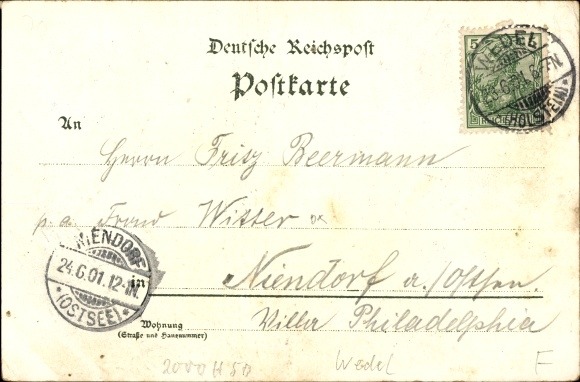 Deutsche Reichspost
Postkarte
5
WEDEL
(HOLSTEIN)
An
Herrn Fritz Beermann
p. a. Witter
NIENDORF
24.6.01.12-1N.
(OSTSEE)
in Niendorf a./Ostsee.
Wohnung
(Straße und Hausnummer)
Villa Philadelphia
2000 H 50 Wedel F